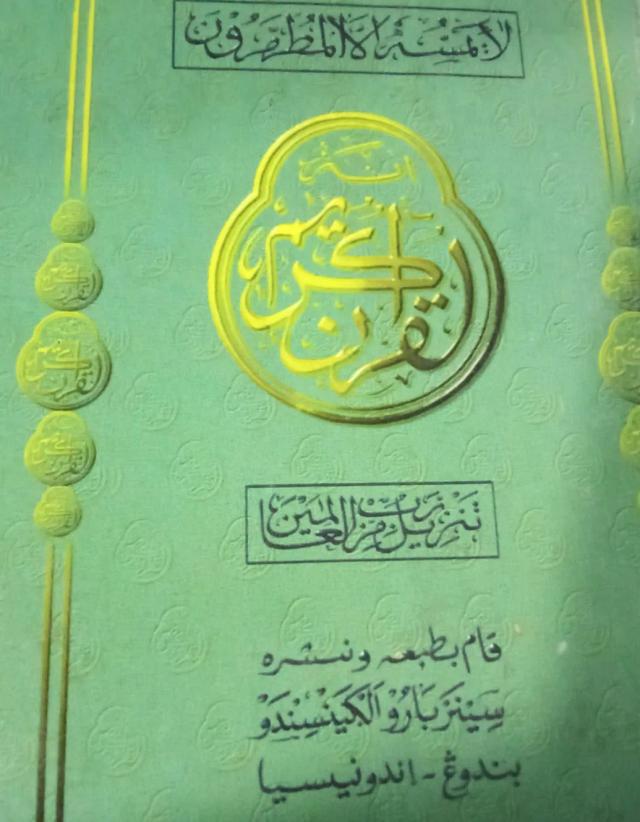 لا يمسه إلا المطهرون
إنه
لقرآن كريم
تنزيل من رب العالمين
قام بطبعه ونشره
سينر بارو الݢينسيندو
بندوڠ - اندونيسيا